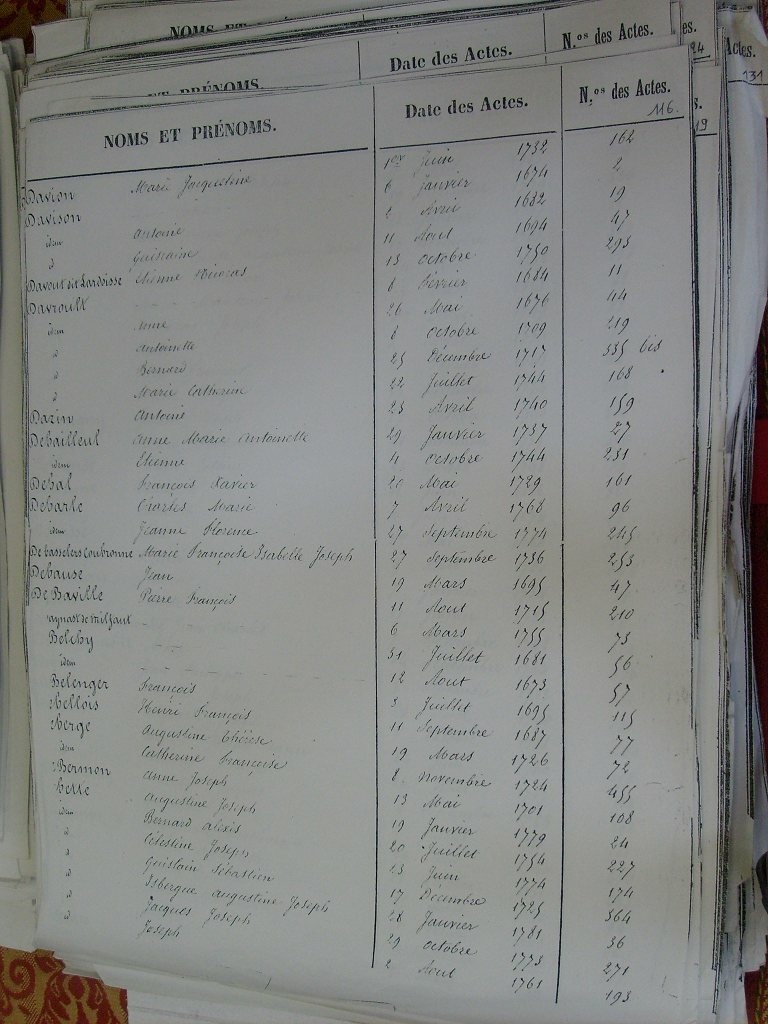 NOMS ET PRÉNOMS. Date des Actes. N.os des Actes.
131
24
19
NOMS ET PRÉNOMS. Date des Actes. N.os des Actes.
116.
Davion Marie Jacqueline 1er Juin 1732 162
Davison 6 Janvier 1674 2
idem Antoine 2 Avril 1682 19
d Guislaine 11 Aout 1694 47
Davout dit Lardoisse Etienne Nicolas 13 octobre 1750 293
Davroult 6 Février 1684 11
idem Anne 26 Mai 1676 44
d Antoinette 8 octobre 1709 219
d Bernard 25 Décembre 1717 335 bis
d Marie Catherine 22 Juillet 1744 168
Dazin Antoine 23 Avril 1740 159
Debailleul Anne Marie Antoinette 29 Janvier 1737 27
idem Etienne 4 octobre 1744 231
Debal François Xavier 20 Mai 1729 161
Debarle Charles Marie 7 Avril 1768 96
idem Jeanne Florence 27 Septembre 1774 245
De Marie Françoise Isabelle Joseph 27 Septembre 1736 253
Debause Jean 19 Mars 1695 47
De Baville Pierre François 11 Aout 1715 210
6 Mars 1755 73
Belchy 31 Juillet 1681 56
idem 12 Aout 1673 57
Belenger François 3 Juillet 1695 115
Bellois Henri François 11 Septembre 1687 77
Berge Augustine Thérèse 19 Mars 1726 72
idem Catherine Françoise 8 Novembre 1724 455
Bermon Anne Joseph 13 Mai 1701 108
Bette Augustine Joseph 19 Janvier 1779 24
idem Bernard Alexis 20 Juillet 1754 227
d Célestine Joseph 23 Juin 1774 174
d Guislain Sébastien 17 Décembre 1725 364
d Isbergue Augustine Joseph 28 Janvier 1781 36
d Jacques Joseph 29 octobre 1773 271
d Joseph 2 Aout 1761 193